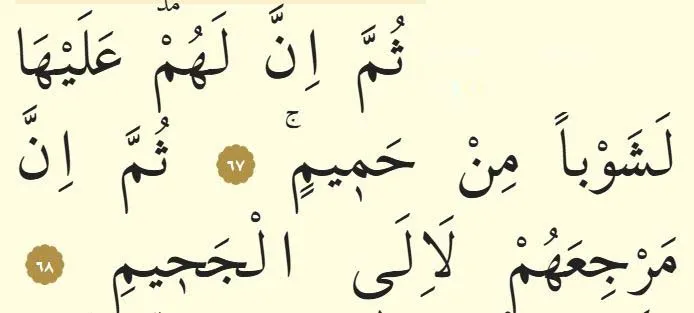 ثُمَّ اِنَّ لَهُمْ عَلَيْهَا
لَشَوْباً مِنْ حَمٖيمٍۚ ٦٧ ثُمَّ اِنَّ
مَرْجِعَهُمْ لَاِلَى الْجَحٖيمِ ٦٨